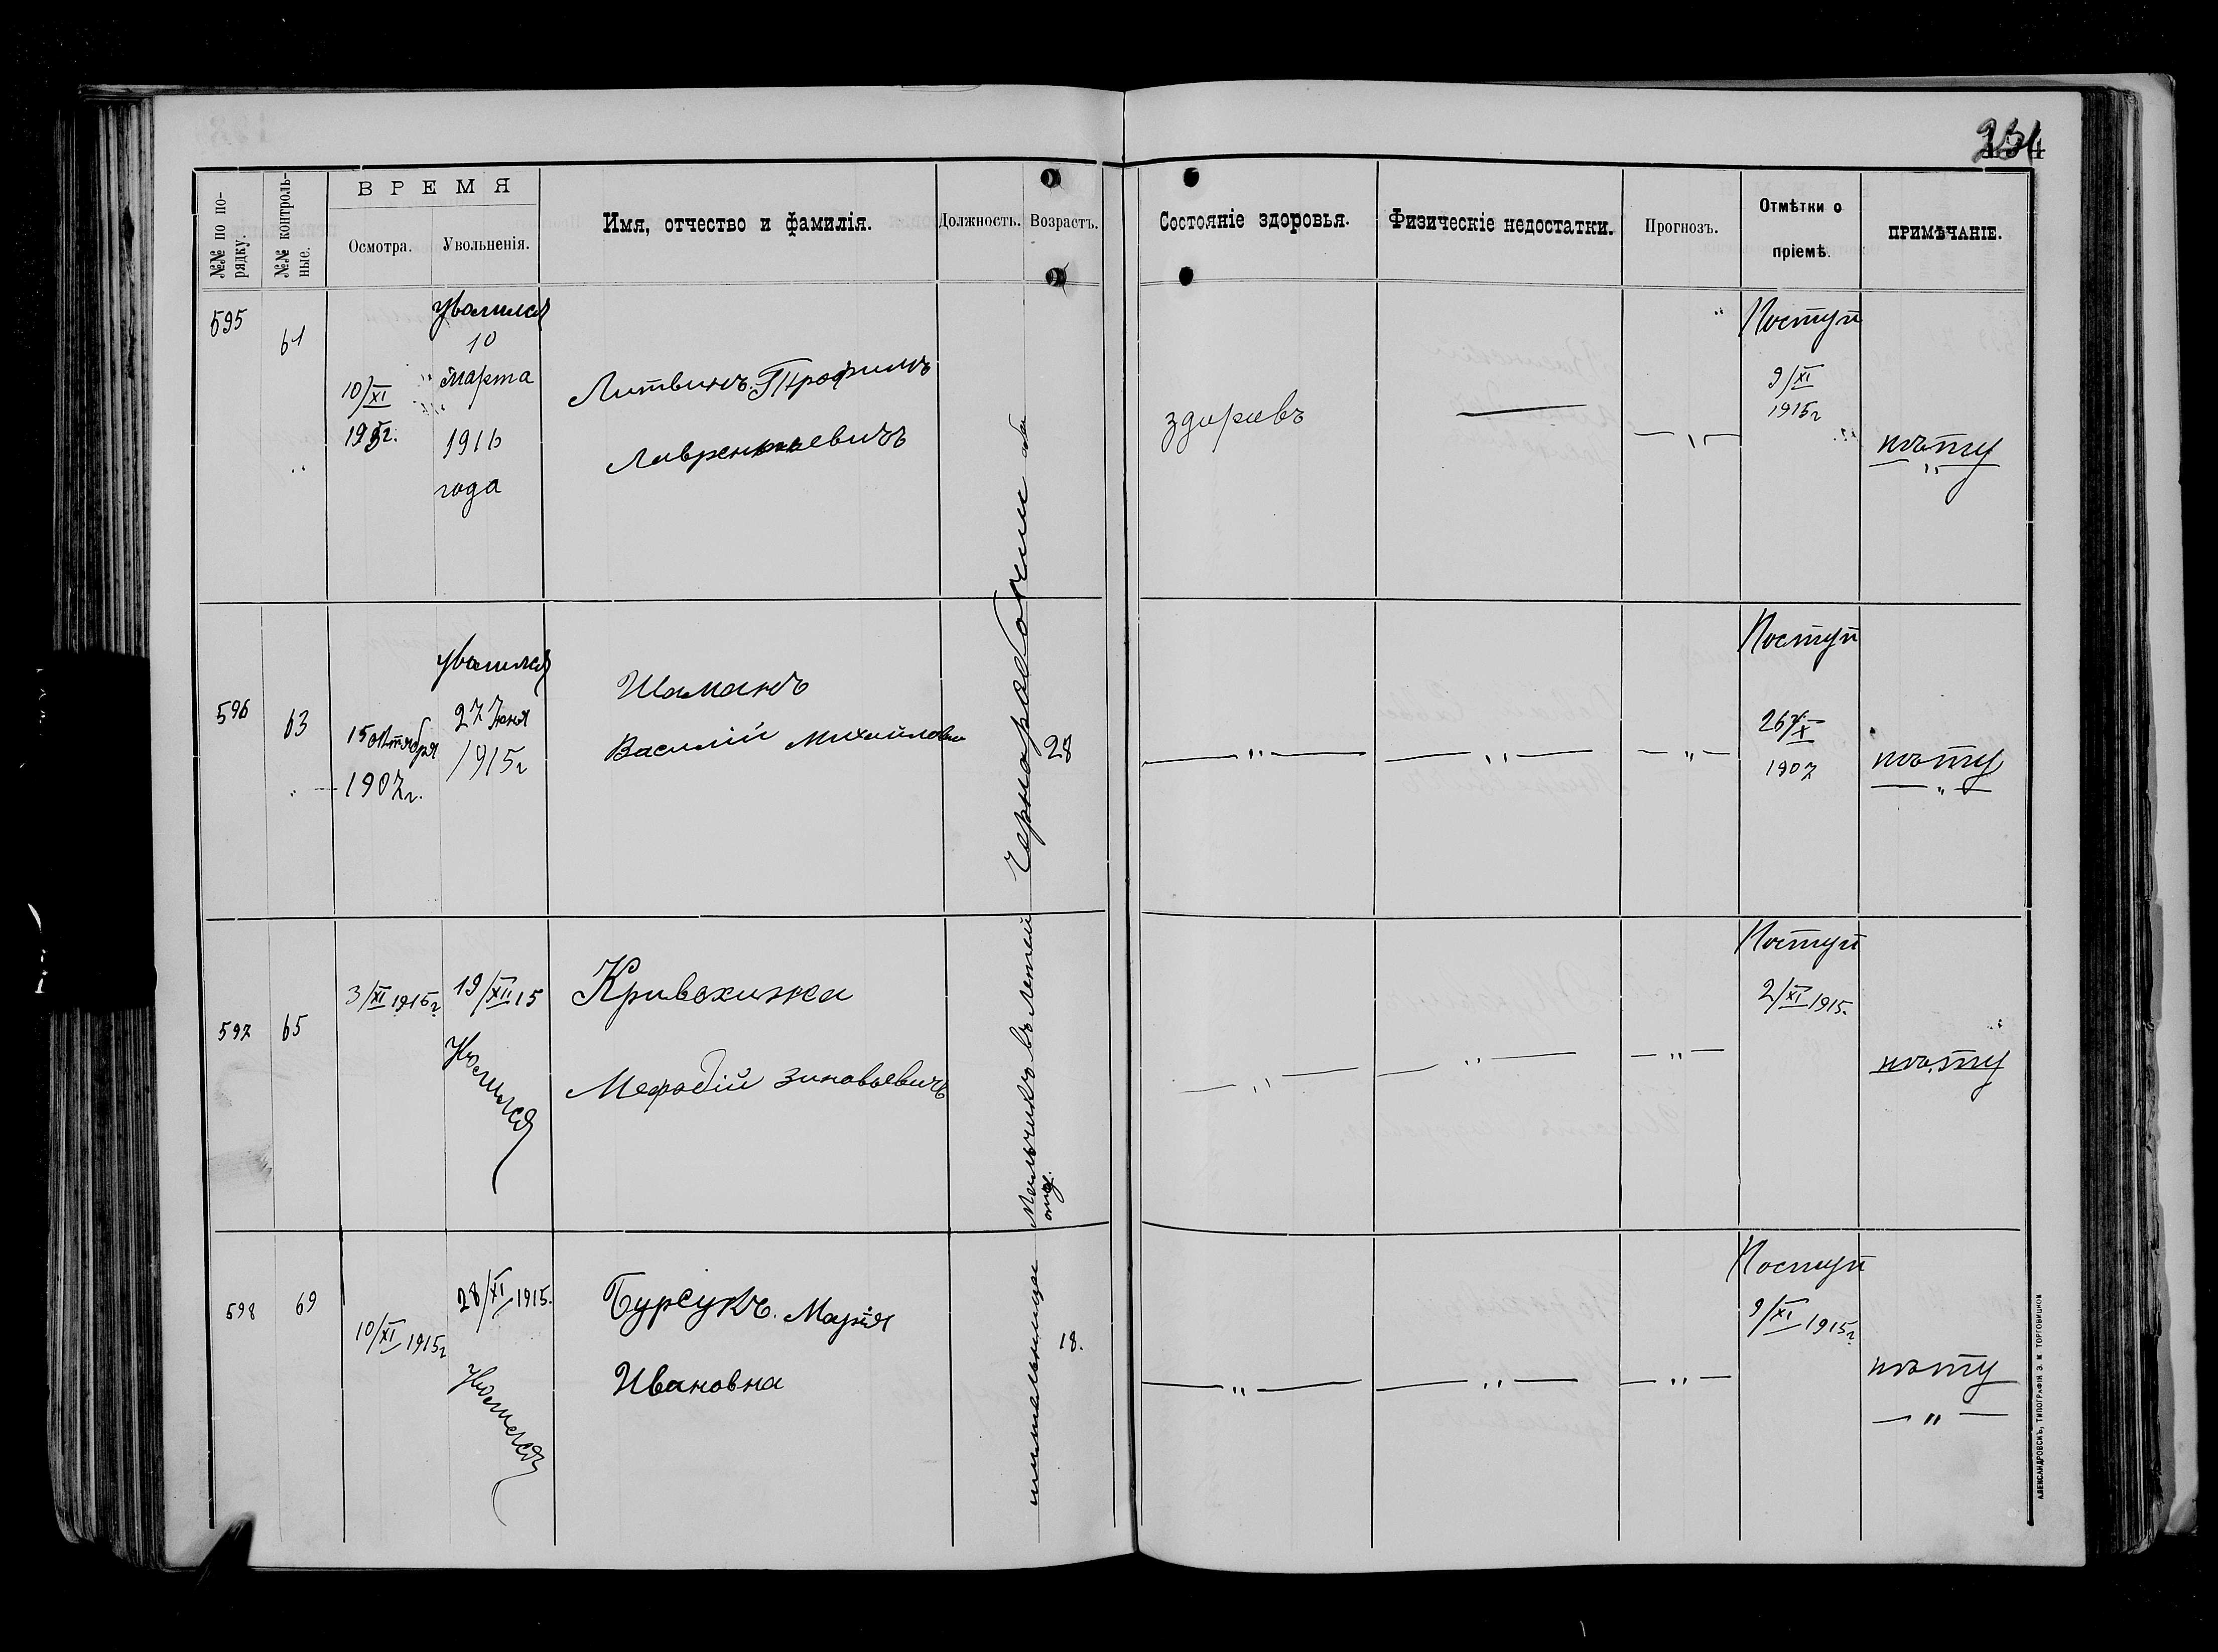 ВРЕМЯ
№№ по по-
рядку.
№№ контроль-
ные.
Осмотра.
Увольненія.
Имя, отчество и фамилія.
Должность.
Возрастъ.
Состояніе здоровья.
Физическіе недостатки.
Прогнозъ.
Отмѣтки о
пріемѣ.
ПРИМѢЧАНІЕ.
595
61
10/XI
1915г.
уволился
10
марта
1916
года
Литвинъ Трофимъ
Лаврентьевичъ
Чернорабочій
здоровъ
— „ —
Поступ
9/XI
1915г
нѣту
— „ —
596
63
15 октября
1907г.
уволился
27 Іюня
1915г
Шаманъ
Василій Михайлович
28
— „ —
— „ —
— „ —
Поступ
26/X
1907
нѣту
— „ —
597
65
3/XI 1915г
19/XII 15
Уволился
Кривохижа
Мефодій Зиновьевичъ
Мальчикъ
— „ —
— „ —
— „ —
Поступ
2/XI 1915.
нѣту
598
69
10/XI 1915г
28/XI 1915.
Уволился
Бурсукъ. Марія
Ивановна
18.
— „ —
— „ —
— „ —
Поступ
9/XI 1915г
нѣту
— „ —
АЛЕКСАНДРОВСКЪ, ТИПОГРАФІЯ Э. М. ТОРГОВИЦКОЙ